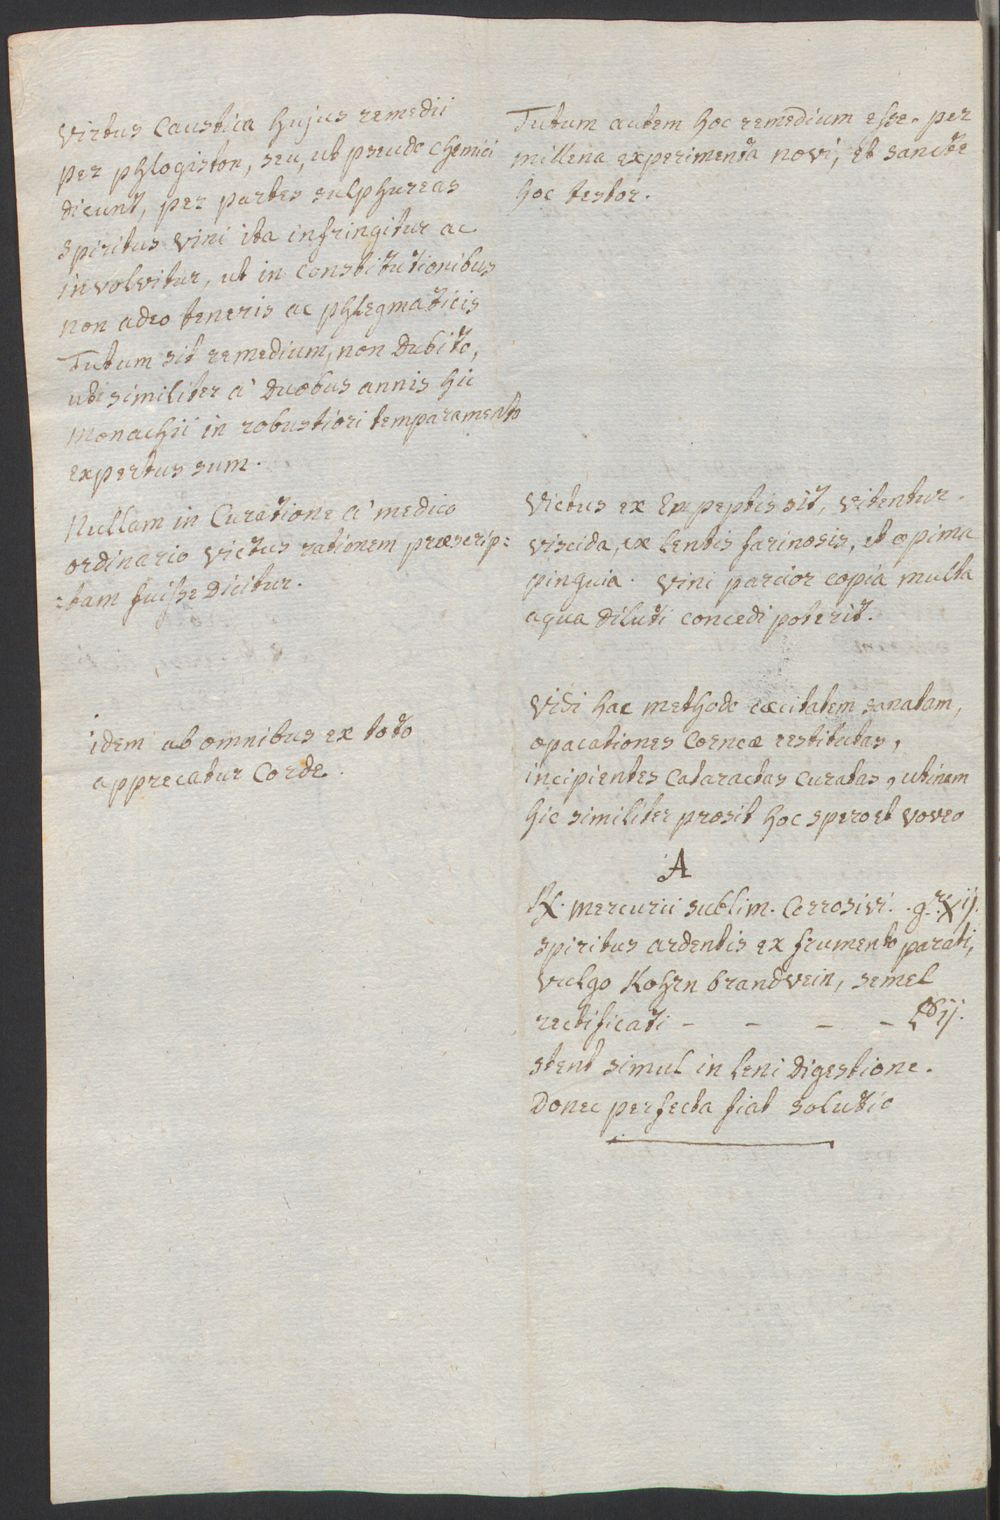 Virtus Caustica hujus remedii
per phlogiston, seu, ut pseudo Chemici
dicunt, per partes sulphureas
spiritus vini ita infringitur ac
involvitur, ut in constitutionibus
non adeo teneris ac phlegmaticis
Tutum sit remedium, non dubito,
uti similiter a' duobus annis hic
monachii in robustiori temparamento
expertus sum.
Nullam in Curatione a' medico
ordinario victus rationem præscrip=
=tam fuisse dicitur.
idem ab omnibus ex toto
apprecatur Corde.
Tutum autem hoc remedium esse. per
millena experimenta novi, et sancte
hoc testor.
Victus ex Eupeptis sit, vitentur.
viscida, ex lentis farinosis, et opima
pinguia. vini parcior copia multa
aqua diluti concedi poterit.
Vidi hac methodo cæcitatem sanatam,
opacationes Corneæ restitutas,
incipientes Cataractas Curatas, utinam
hic similiter prosit hoc spero et voveo
A
℞. mercurii sublim. Corrosivi. gr. xij.
spiritus ardentis ex frumento parati,
vulgo Kohrn brandvein, semel
rectificati - - - - ℔ ij.
stent simul in leni digestione.
Donec perfecta fiat solutio